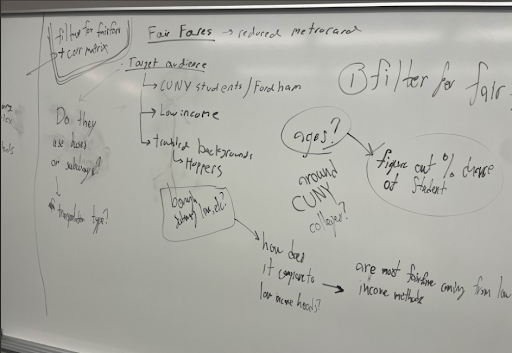 filter for fairfares
+ corr matrix
Fair Fares → reduced metrocard
Target audience
→ CUNY students/Fordham
→ Low income
→ troubled backgrounds
↳ Heppers
Do they
use buses
or subways?
transportation type?
borough,
subway line, etc?
① filter for fair
ages?
figure out % change
of student
around
CUNY
colleges?
how does
it compare to
low income heads?
→ are most fairfare coming from low
income methods